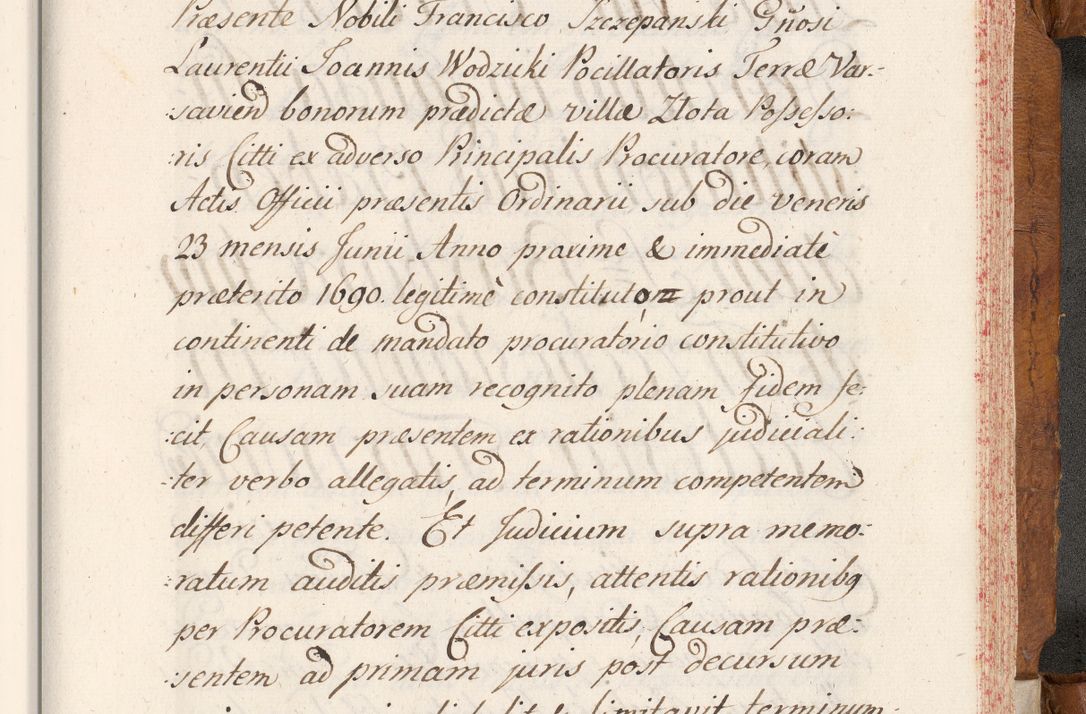 Præsente Nobili Francisco Szczepanski Gnosi
Laurentii Joannis Wodzicki Pocillatoris Terræ Var-
:saviend bonorum prædictæ villæ Zlota Possesso:
:ris Citti ex adverso Principalis Procuratore, coram
Actis Officii præsentis Ordinarii sub die veneris
23 mensis Junii Anno proxime & immediatè
præterito 1690. legitimè constituto, prout in
continenti de mandato procuratorio constitutivo
in personam suam recognito plenam fidem fe:
:cit, Causam præsentem ex rationibus judiciali:
:ter verbo allegatis, ad terminum competentem
differi petente. Et Judicium supra memo:
:ratum auditis præmissis, attentis rationibq
per Procuratorem Citti expositis, Causam præ:
:sentem ad primam juris post decursum
limitavit terminum